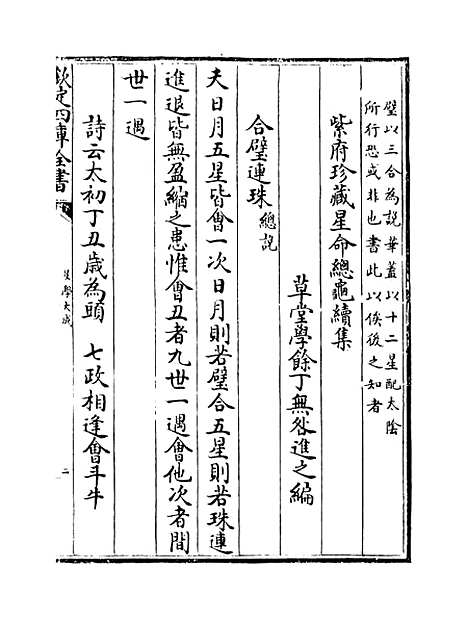 璧以三合為説華蓋以十二星配太陰
所行恐或非也書此以俟後之知者
紫府珍藏星命總龜續集
草堂學餘丁無咎進之編
合璧連珠總説
夫日月五星皆會一次日月則若璧合五星則若珠連
進退皆無盈縮之患惟會丑者九世一遇會他次者間
世一遇
詩云太初丁丑歳為頭 七政相逢會斗牛
欽定四庫全書
星學大成
二